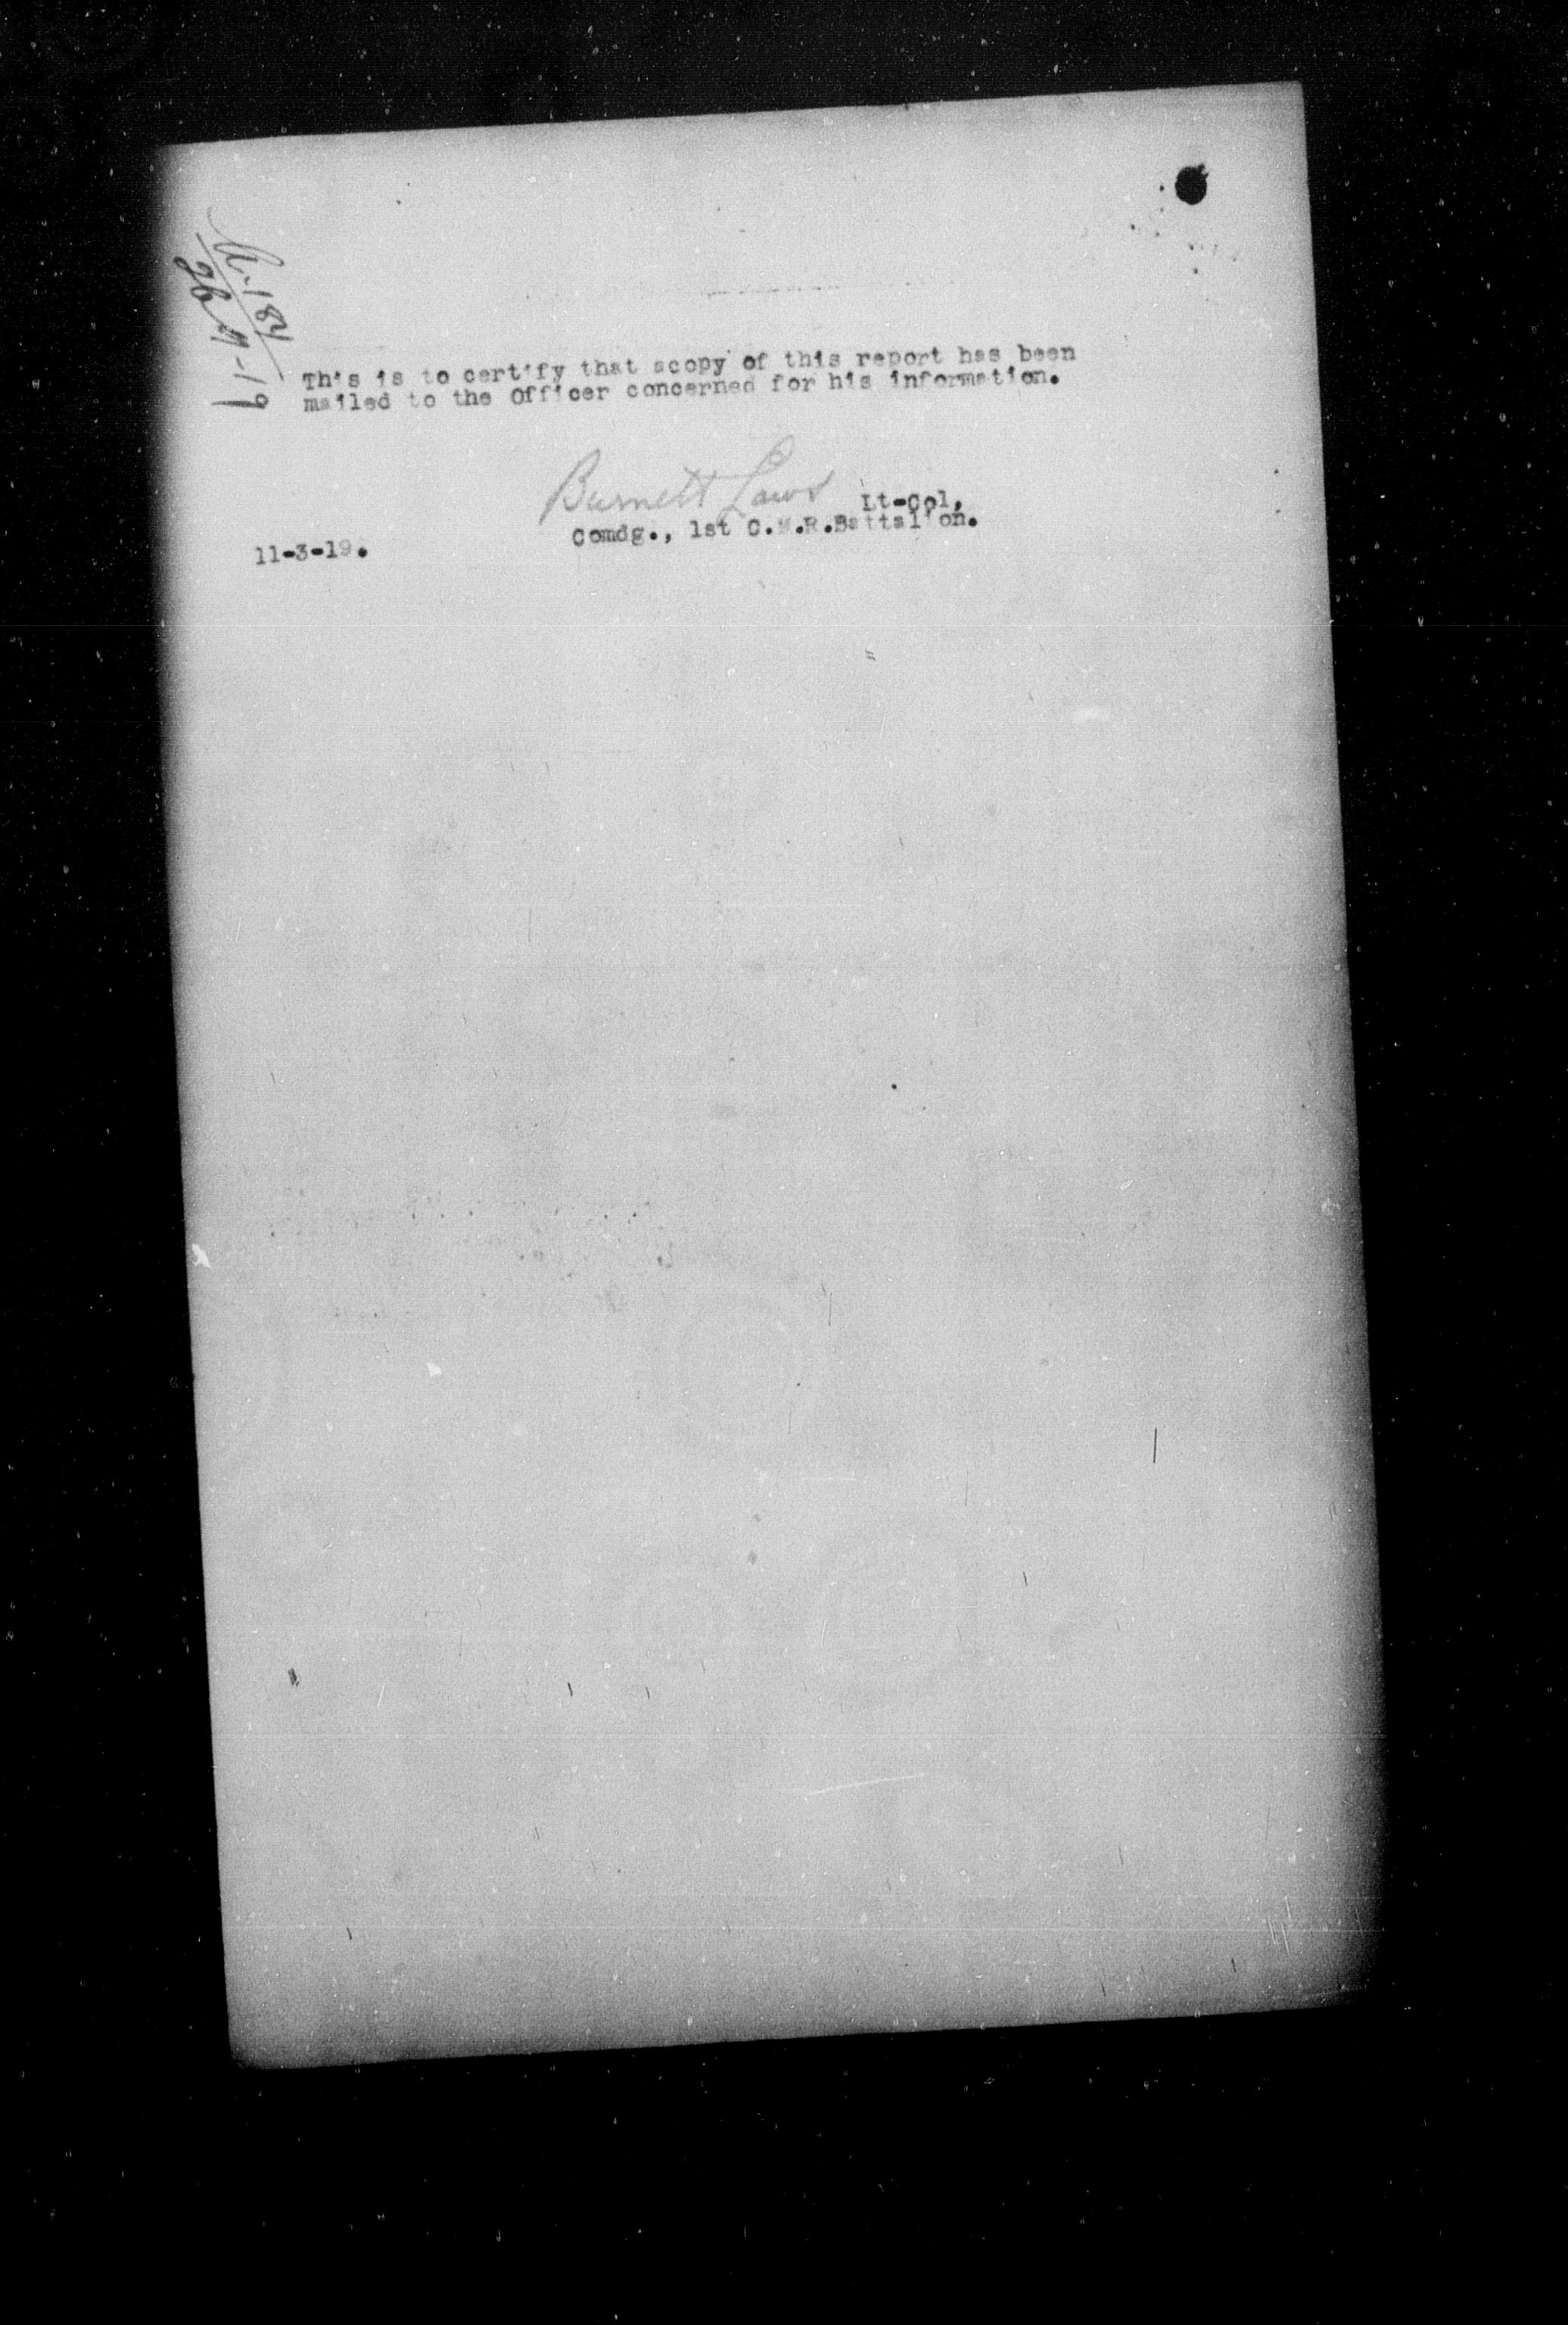 -181
26-4-19
This is to certify that acopy of this report has been
mailed to the Officer concerned for his information.
Burnett Laws Lt-Col,
Comdg., 1st C.M.R.Battalion.
11-3-19.